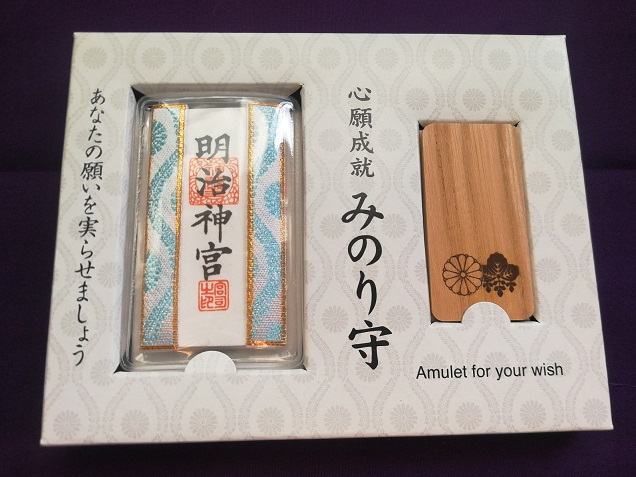 心願成就
みのり守
Amulet for your wish
明治神宮
あなたの願いを実らせましょう